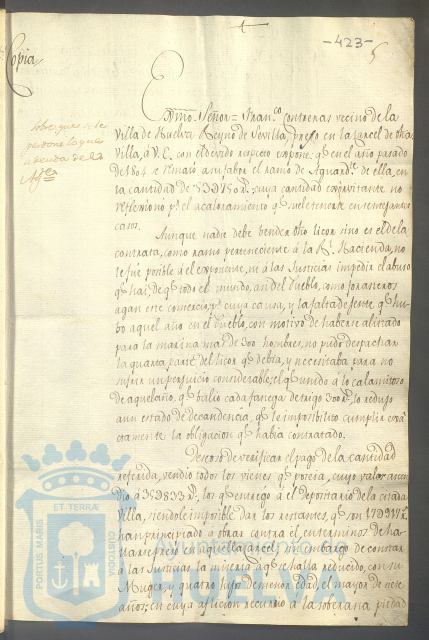 -423-
Copia
sobre que se le
perdone lo que
Exmo. Señor = Franco. Contreras vecino de la
Villa de Huelva Reyno de Sevilla, preso en la Carcel de dha.
Villa, á V.E. con el devido respecto expone: qe. en el año pasado
de 1804 se remató a su fabor el ramo de Aguardte. de ella, en
la cantidad de 53D750 rs.; cuya cantidad exorvitante no
reflexionó pr. el acaloramiento qe. suele tenerse en semejantes
casos.
Aunque nadie debe bender dho licor sino es el de la
contrata, como ramo perteneciente á la Rl. Hacienda, no
le fue posible á el exponente, ni á las Justicias impedir el abuso
qe. hai, de qe. todo el mundo, asi del Pueblo, como forasteros
agan este comercio; pr. cuya causa, y la falta de Jente qe. hu-
bo aquel año en el Pueblo, con motivo de haberse alistado
para la marina mas de 300 hombres, no pudo despachar
la quarta parte del licor qe. debia, y necesitaba para no
sufrir un perjuicio considerable; el qe. unido á lo calamitoso
de aquel año, qe. balió cada fanega de trigo 300 rs., lo redujo
a un estado de decandencia, qe. le imposibilitó cumplir exa-
ctamente la obligacion qe. habia contratado.
Deseoso de verificar el pago de la cantidad
referida, vendió todos los vienes qe. poseia, cuyo valor ascen-
dió á 35D833 rs., los qe. entregó á el Depositario de la citada
Villa, siendole imposible dar los restantes, qe. son 17D917 rs.
han principiado a obrar contra él en terminos de ha-
llarse preso en aquella carcel, sin embargo de constar
á las Justicias la miseria a qe. se halla reducido, con su
Muger, y quatro hijos de menor edad, el mayor de siete
años; en cuya aflicion recurrio á la soberana piedad
Ayuntamiento
HUELVA
PORTUS MARIS
ET TERRÆ
CUSTODIA